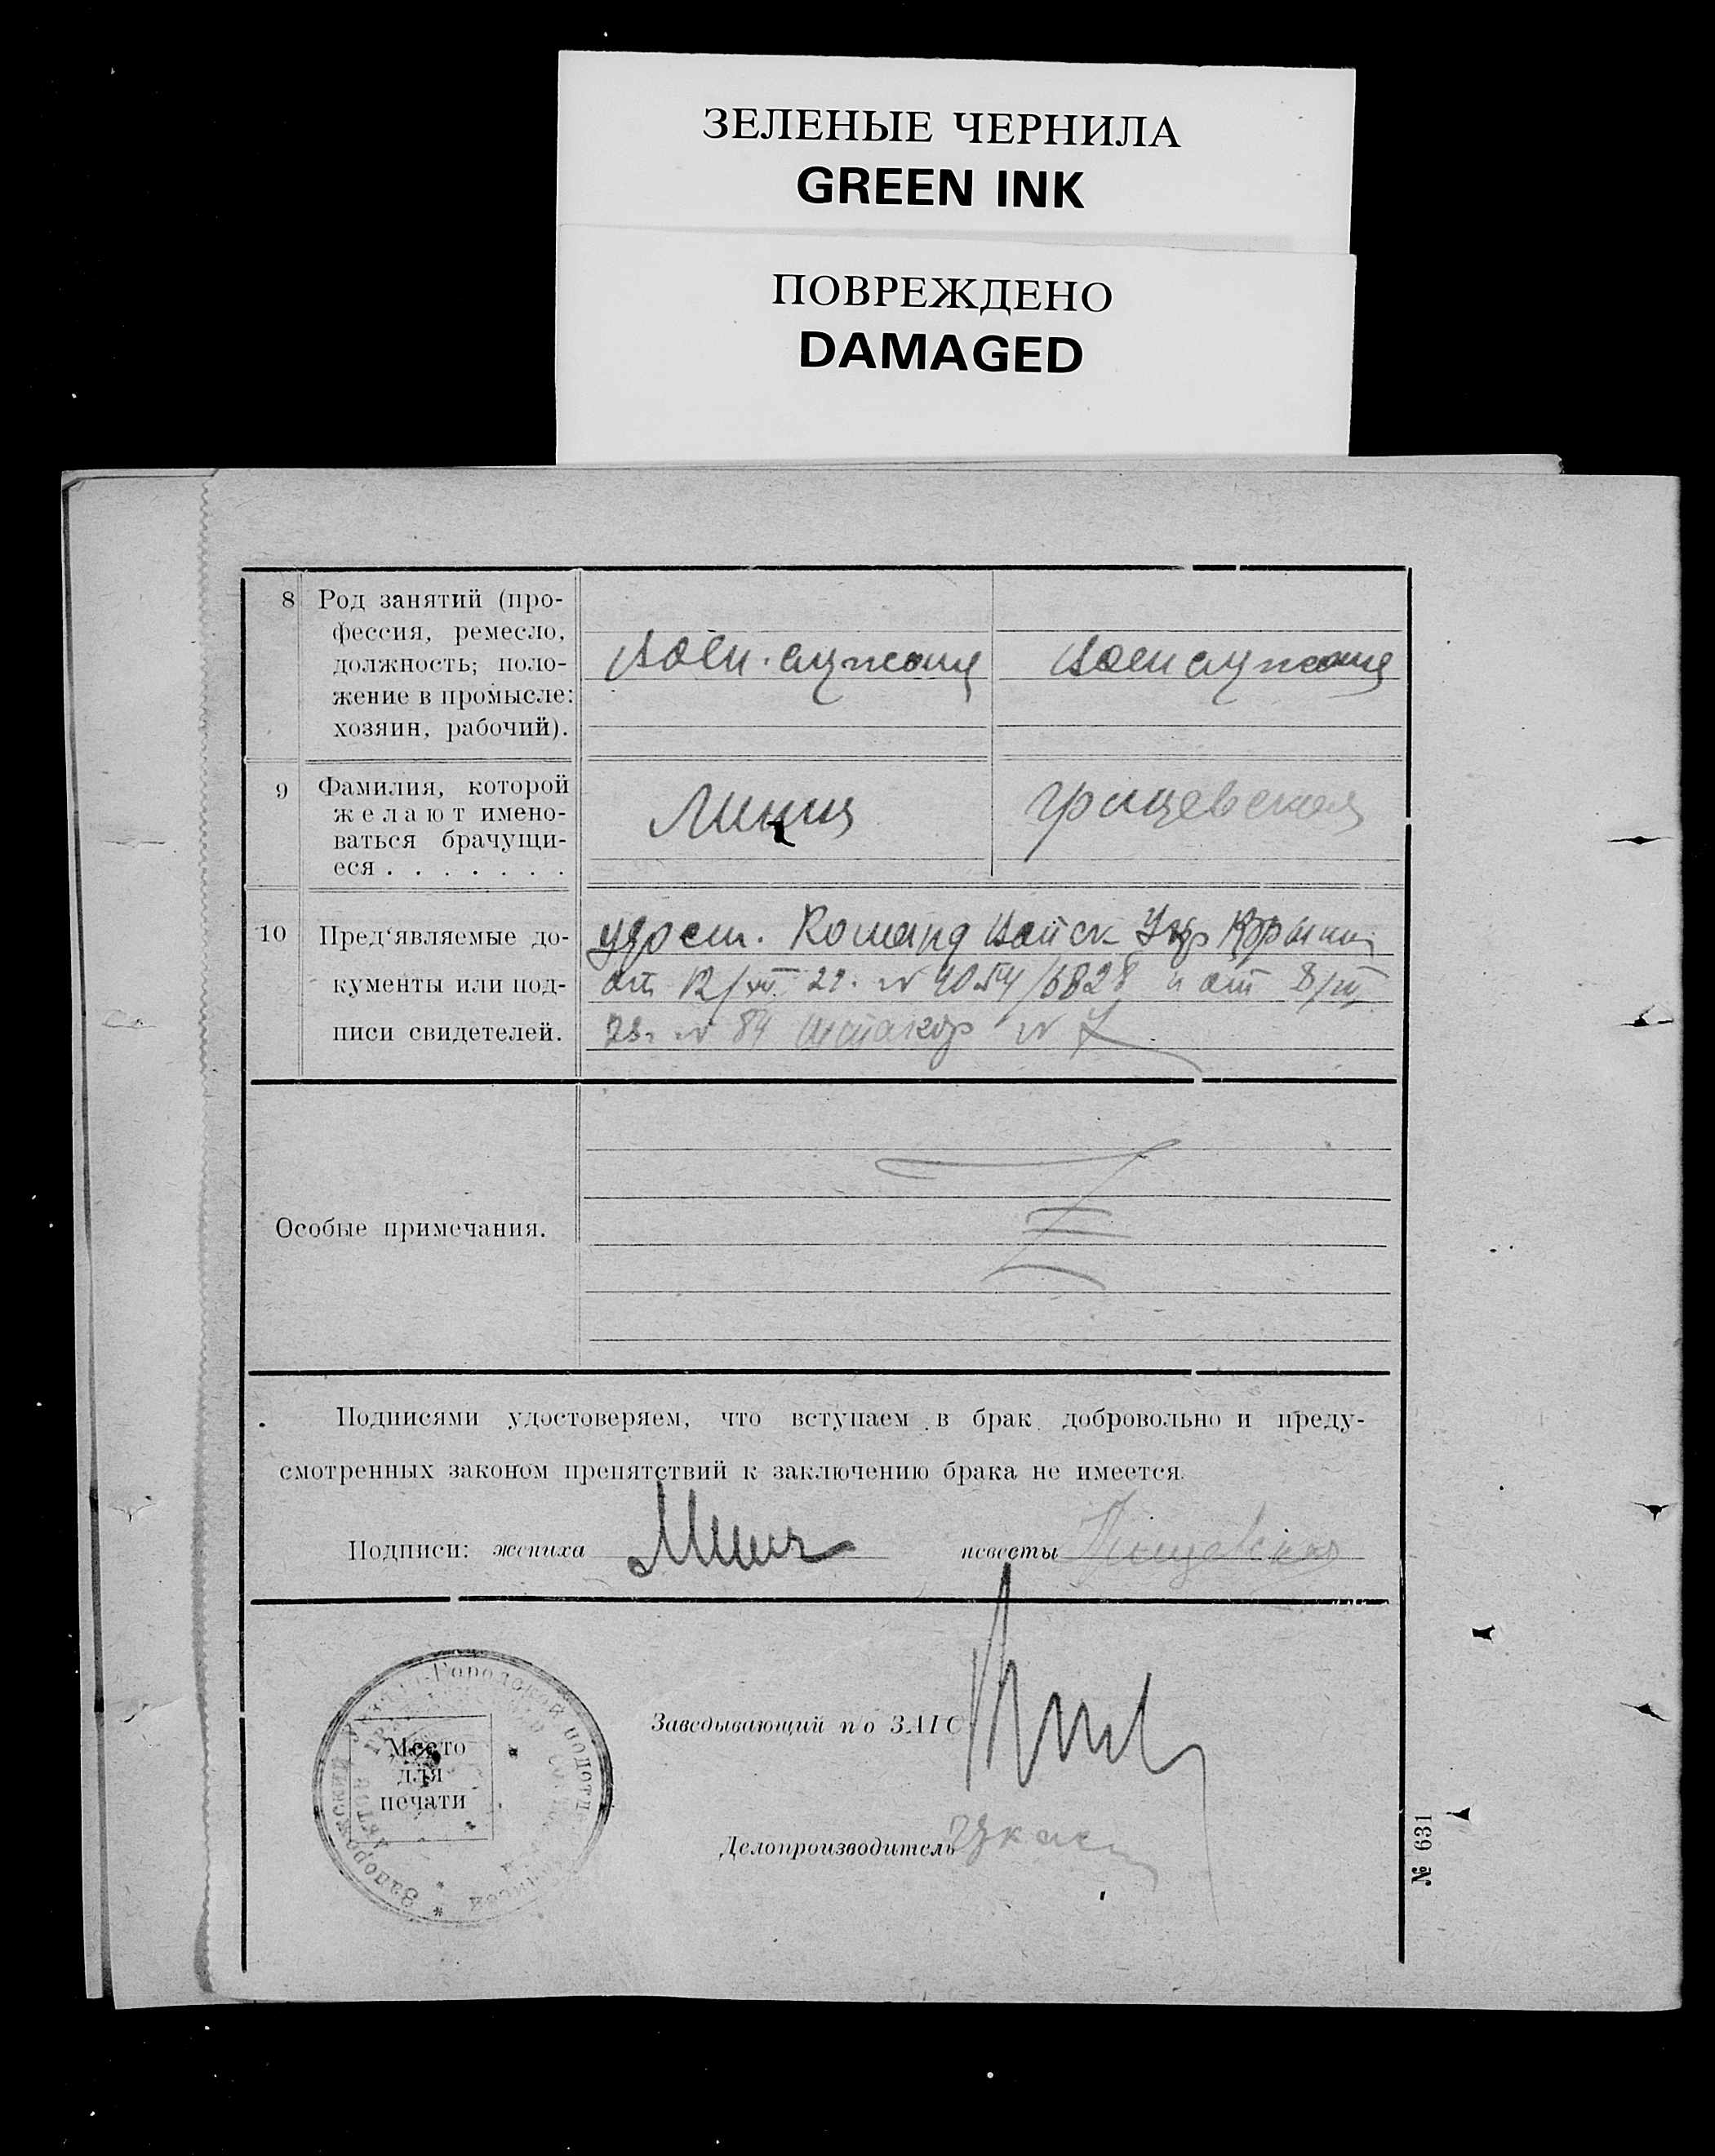 ЗЕЛЕНЫЕ ЧЕРНИЛА
GREEN INK
ПОВРЕЖДЕНО
DAMAGED
8 Род занятий (про-
фессия, ремесло,
должность; поло-
жение в промысле:
хозяин, рабочий).
Воен. служащ Воен служащ
9 Фамилия, которой
желают имено-
ваться брачущи-
еся . . . . . . .
10 Пред‘являемые до-
кументы или под-
писи свидетелей.
удост. Команд Войск Укр Крыма
от 12/VII 22. № 4054/6828 и от 8/III
23. № 84
Особые примечания.
Подписями удостоверяем, что вступаем в брак добровольно и преду-
смотренных законом препятствий к заключению брака не имеется.
Подписи: жениха невесты
Городской подотд
Запорожский
Место
для
печати
Заведывающий по ЗАГС
Делопроизводитель
№ 631